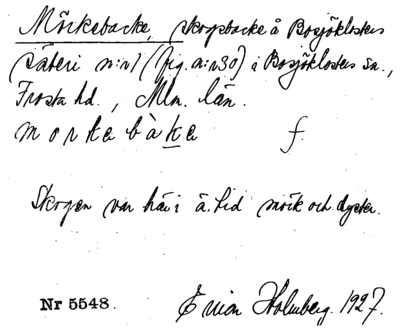 Mörkebacke, skogsbacke å Bosjöklosters
säteri n:r 1 (fig. a:n 30) i Bosjöklosters sn.,
Frosta hd., Mlm. län.
morkebàke f.
Skogen var här i ä. tid mörk och dyster.
Nr 5548. Einar Holmberg. 1927.